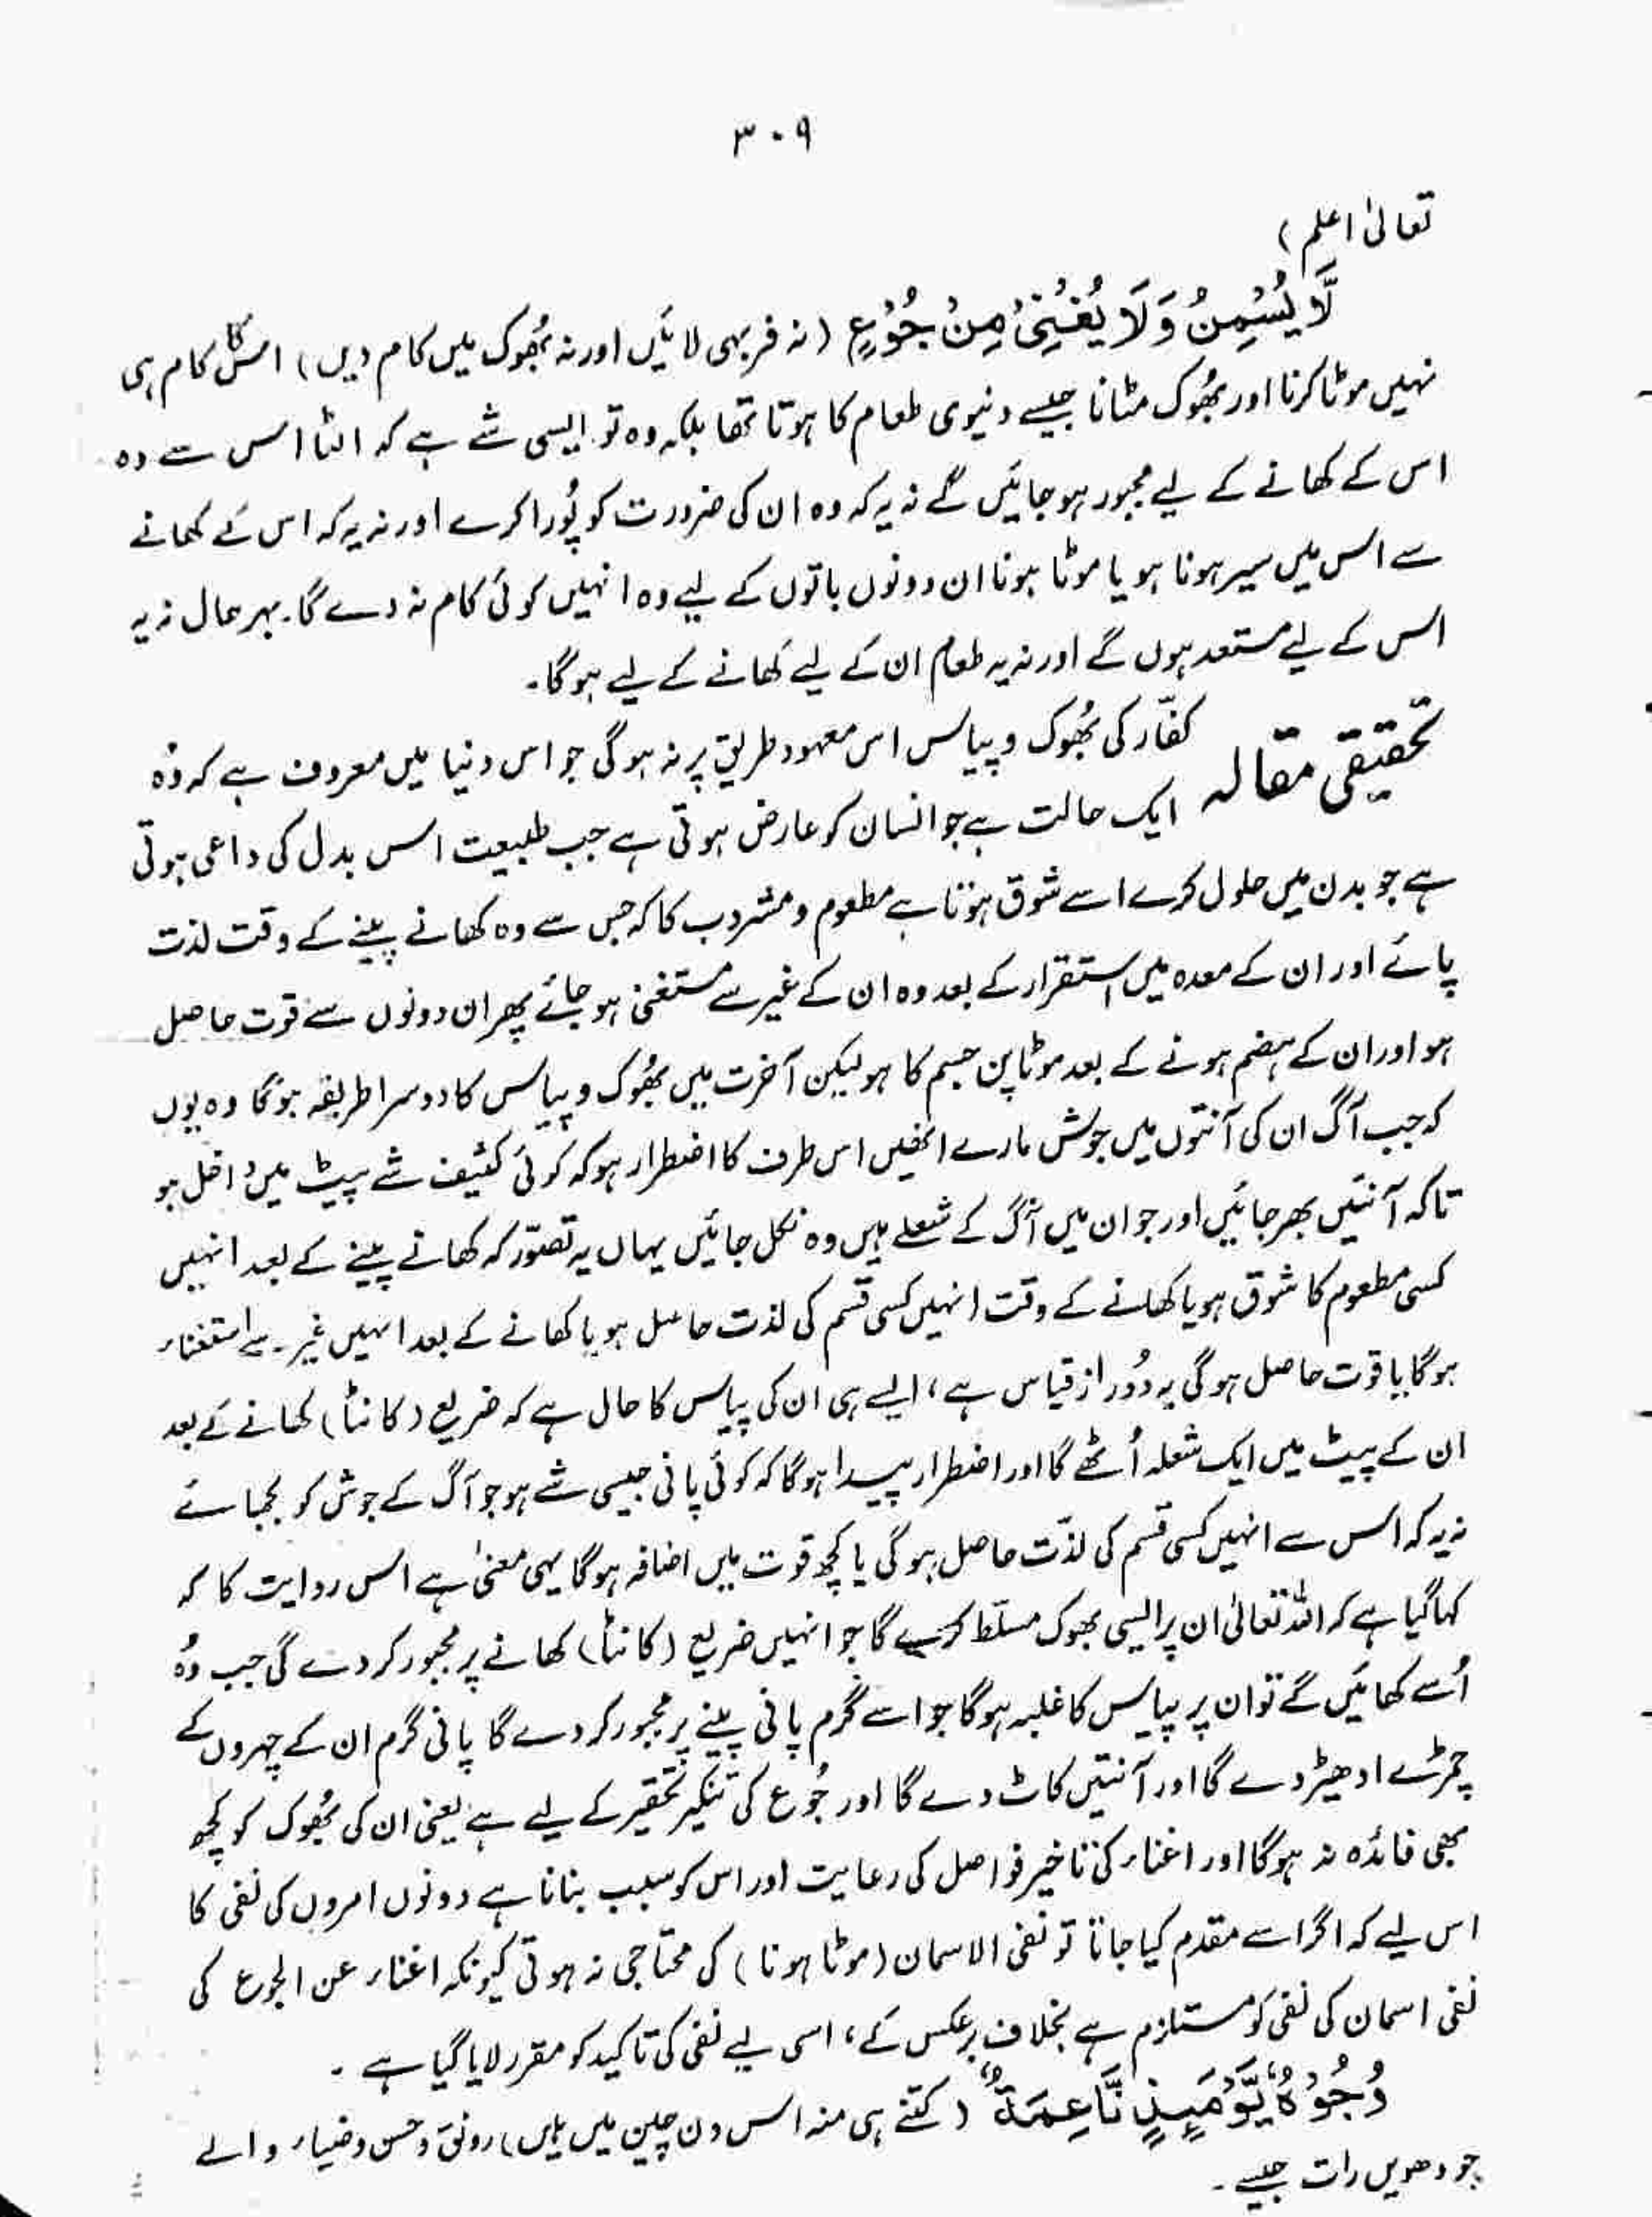 ۳۰۹
تعالیٰ اعلم)
لَّا يُسْمِنُ وَلَا يُغْنِيْ مِنْ جُوْعٍ (نہ فربہی لائیں اور نہ بھُوک میں کام دیں) اس کا کام ہی
نہیں موٹا کرنا اور بھُوک مٹانا جیسے دنیوی طعام کا ہوتا تھا بلکہ وہ تو ایسی شے ہے کہ الٹا اس سے وہ
اس کے کھانے کے لیے مجبور ہو جائیں گے نہ یہ کہ وہ ان کی ضرورت کو پُورا کرے اور نہ یہ کہ اس کے کھانے
سے اس میں سیر ہونا ہو یا موٹا ہونا ان دونوں باتوں کے لیے وہ انہیں کوئی کام نہ دے گا۔ بہرحال نہ یہ
اس کے لیے مستعد ہوں گے اور نہ یہ طعام ان کے لیے کھانے کے لیے ہوگا۔
تحقیقی مقالہ کفّار کی بھُوک و پیاس اس معہود طریق پر نہ ہوگی جو اس دنیا میں معروف ہے کہ وُہ
ایک حالت ہے جو انسان کو عارض ہوتی ہے جب طبیعت اس بدل کی داعی ہوتی
ہے جو بدن میں حلول کرے اسے شوق ہوتا ہے مطعوم و مشروب کا کہ جس سے وہ کھانے پینے کے وقت لذت
پائے اور ان کے معدہ میں استقرار کے بعد وہ ان کے غیر سے مستغنی ہو جائے پھر ان دونوں سے قوت حاصل
ہو اور ان کے ہضم ہونے کے بعد موٹاپن جسم کا ہو لیکن آخرت میں بھُوک و پیاس کا دوسرا طریقہ ہوگا وہ یوں
کہ جب آگ ان کی آنتوں میں جوش مارے انھیں اس طرف کا اضطرار ہو کہ کوئی کثیف شے پیٹ میں داخل ہو
تاکہ آنتیں بھر جائیں اور جو ان میں آگ کے شعلے ہیں وہ نکل جائیں یہاں یہ تصوّر کہ کھانے پینے کے بعد انہیں
کسی مطعوم کا شوق ہو یا کھانے کے وقت انہیں کسی قسم کی لذت حاصل ہو یا کھانے کے بعد انہیں غیر سے استغناء
ہوگا یا قوت حاصل ہوگی یہ دُور از قیاس ہے، ایسے ہی ان کی پیاس کا حال ہے کہ ضریع (کانٹا) کھانے کے بعد
ان کے پیٹ میں ایک شعلہ اُٹھے گا اور اضطرار پیدا ہوگا کہ کوئی پانی جیسی شے ہو جو آگ کے جوش کو بجھائے
نہ یہ کہ اس سے انہیں کسی قسم کی لذّت حاصل ہوگی یا کچھ قوت میں اضافہ ہوگا یہی معنیٰ ہے اس روایت کا کہ
کہا گیا ہے کہ اللہ تعالیٰ ان پر ایسی بھوک مسلّط کرے گا جو انہیں ضریع (کانٹا) کھانے پر مجبور کر دے گی جب وُہ
اُسے کھائیں گے تو ان پر پیاس کا غلبہ ہوگا جو اسے گرم پانی پینے پر مجبور کر دے گا پانی گرم ان کے چہروں کے
چمڑے ادھیڑ دے گا اور آنتیں کاٹ دے گا اور جُوع کی تنکیر تحقیر کے لیے ہے یعنی ان کی بھُوک کو کچھ
بھی فائدہ نہ ہوگا اور اغناء کی تاخیر فواصل کی رعایت اور اس کو سبب بنانا ہے دونوں امروں کی نفی کا
اس لیے کہ اگر اسے مقدم کیا جاتا تو نفی الاسمان (موٹا ہونا) کی محتاجی نہ ہوتی کیونکہ اغناء عن الجوع کی
نفی اسمان کی نفی کو مستلزم ہے بخلاف برعکس کے، اسی لیے نفی کی تاکید کو مقرر لایا گیا ہے۔
وُجُوْهٌ يَّوْمَىِٕذٍ نَّاعِمَةٌ (کتنے ہی منہ اس دن چین میں ہیں) رونق و حسن و ضیاء والے
چودھویں رات جیسے۔